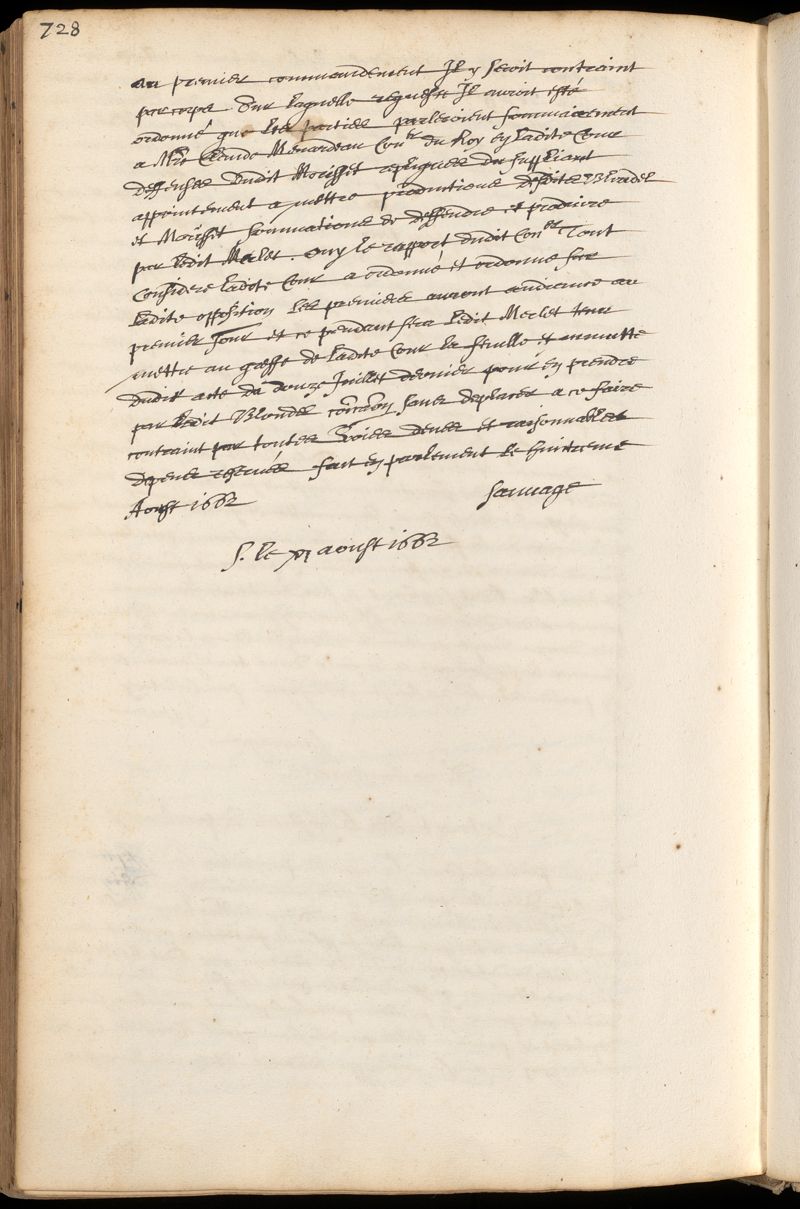 728
au premier commandement Il y seroit contraint
par corps Sur laquelle requeste Il auroit esté
ordonné que les parties parleroient sommairement
a Mre Claude Menardeau Coner du Roy en ladite Cour
deffenses dudit Morisset repliques du suppliant
appointement a mettre productions desdits Blondel
et Morisset sommations de deffendre et produire
par ledit Merlet. Ouy le rapport dudit Coner Tout
Considere ladite Cour a ordonné et ordonne sur
ladite opposition les premiers auront audiance au
premier Jour et ce pendant sera ledit Merlet tenu
mettre au greffe de ladite Cour la feuille et minutte
dudit acte du douze Juillet dernier pour en prendre
par ledit Blondel sans deplacer a ce faire
contraint par toutes voies deues et raisonnables
depens reservés fait en parlement le huitieme
Aoust 1662
Sauvage
S. le aoust 1662